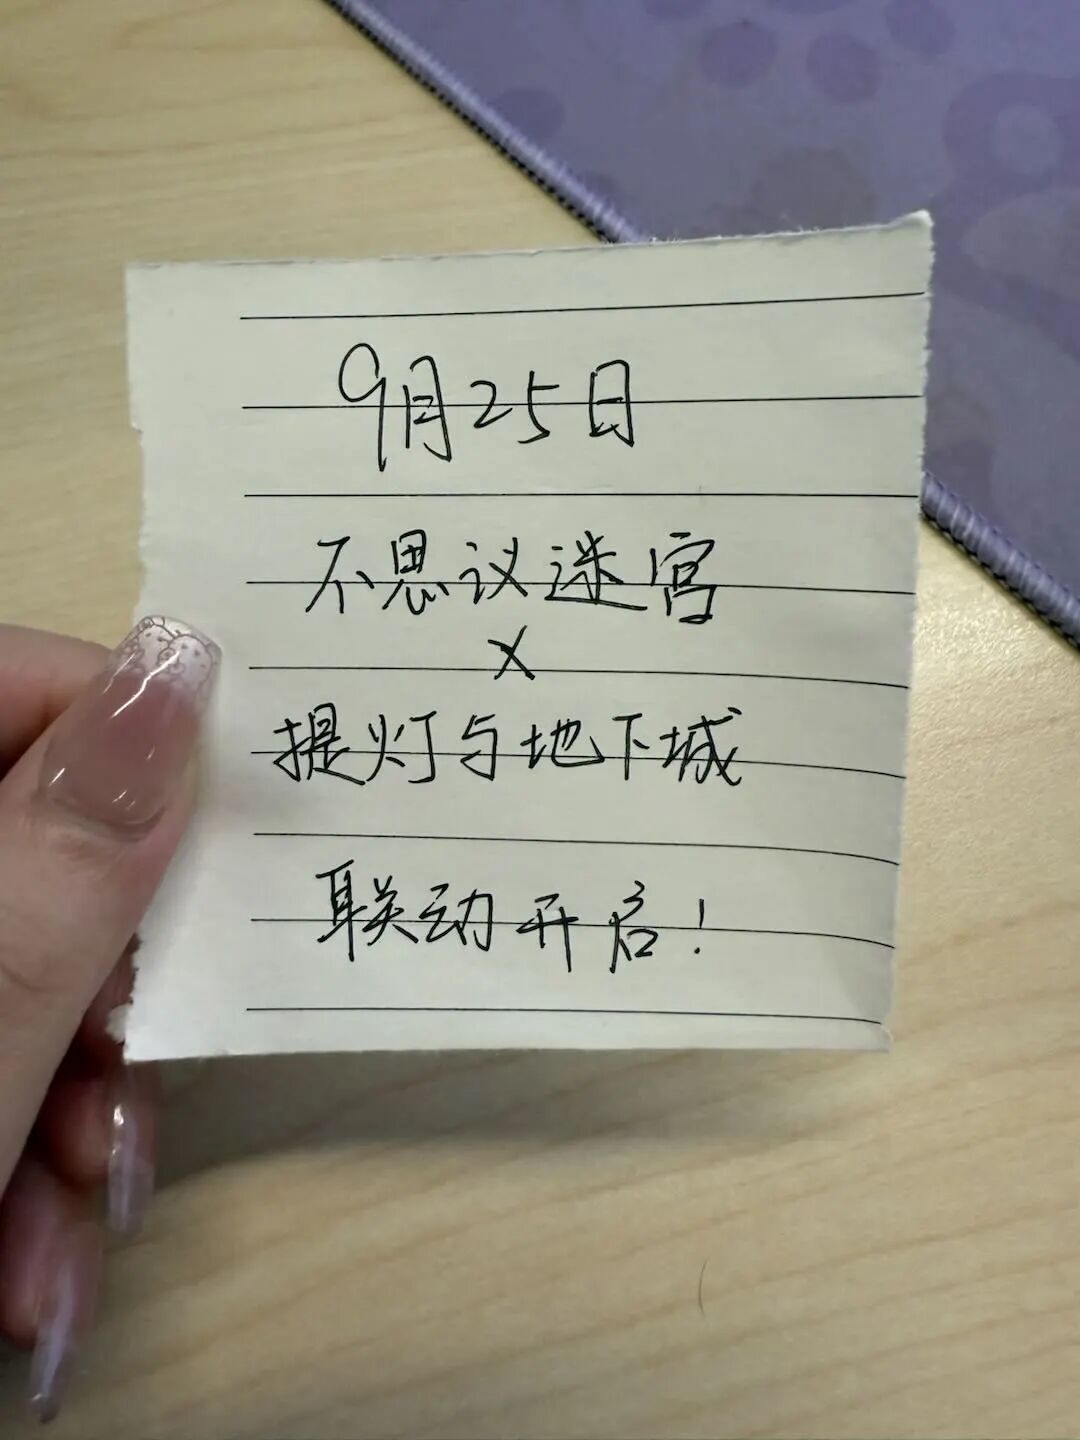 9月25日
不思议迷宫
X
提灯与地下城
联动开启!